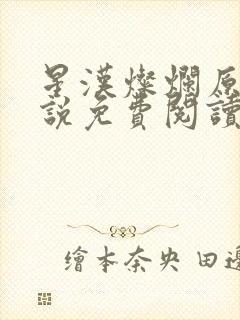 星漢燦爛原
說免費閱讀
繪本奈央 田邊